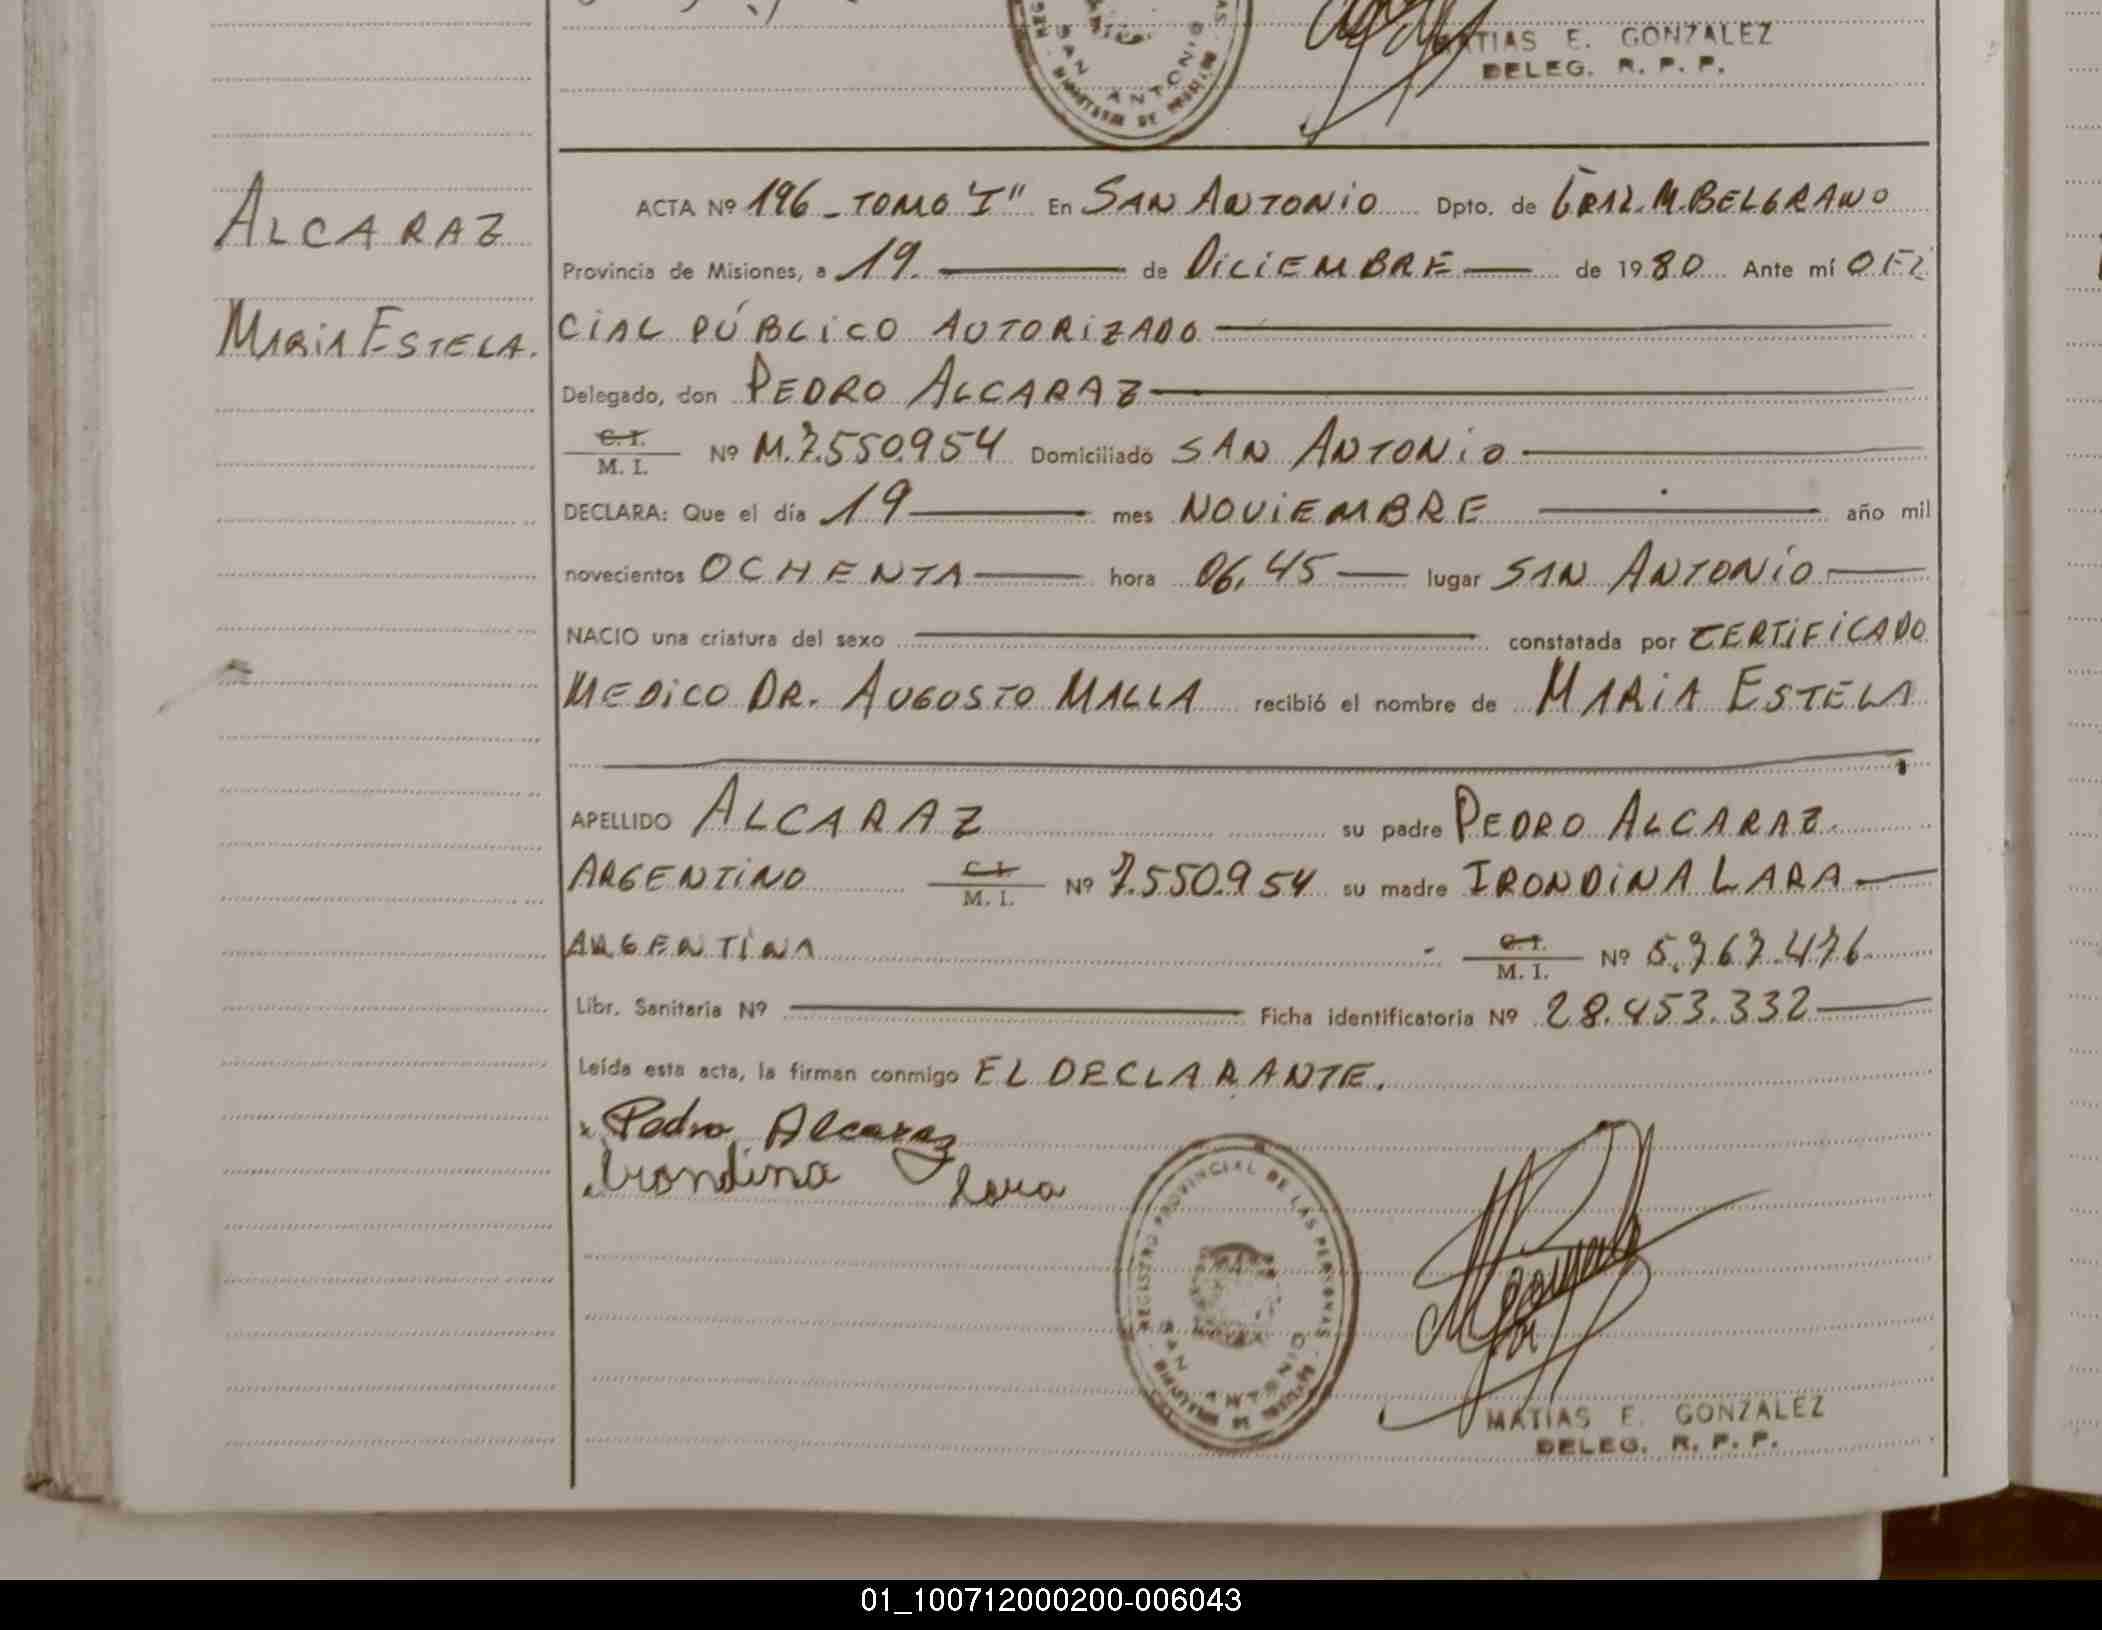 MATIAS E. GONZALEZ
DELEG. R. P. P.
SAN ANTONIO
ALCARAZ
MARIA ESTELA.
ACTA Nº 196 - TOMO "I" En SAN ANTONIO Dpto. de GRAL. M. BELGRANO
Provincia de Misiones, a 19 de DICIEMBRE de 1980 Ante mí OFI
CIAL PÚBLICO AUTORIZADO
Delegado, don PEDRO ALCARAZ
C. I.
M. I. Nº M.7.550.954 Domiciliado SAN ANTONIO
DECLARA: Que el día 19 mes NOVIEMBRE año mil
novecientos OCHENTA hora 06,45 lugar SAN ANTONIO
NACIO una criatura del sexo constatada por CERTIFICADO
MEDICO DR. AUGOSTO MALLA recibió el nombre de MARIA ESTELA
APELLIDO ALCARAZ su padre PEDRO ALCARAZ
ARGENTINO C. I.
M. I. Nº 7.550.954 su madre IRONDINA LARA
ARGENTINA C. I.
M. I. Nº 5.767.476
Libr. Sanitaria Nº Ficha identificatoria Nº 28.453.332
Leída esta acta, la firman conmigo EL DECLARANTE.
Pedro Alcaraz
Irondina Lara
REGISTRO PROVINCIAL DE LAS PERSONAS
SAN ANTONIO
MATIAS E. GONZALEZ
DELEG. R. P. P.
01_100712000200-006043